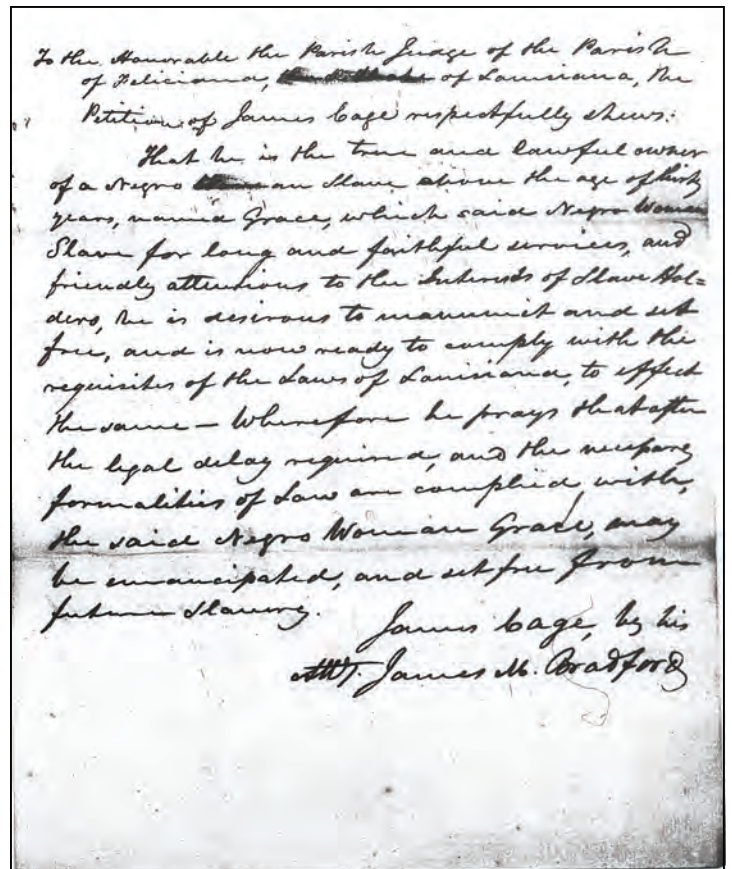 To the Honorable the Parish Judge of the Parish
of Feliciana, of Louisiana, the
Petition of James Cage respectfully shews:
That he is the true and lawful owner
of a Negro an Slave above the age of thirty
years, named Grace, which said Negro Woman
Slave for long and faithful services, and
friendly attentions to the Interests of Slave Hol=
ders, he is desirous to manumit and set
free, and is now ready to comply with the
requisites of the Laws of Louisiana, to effect
the same — Wherefore he prays that after
the legal delay required, and the necessary
formalities of Law are complied with,
the said Negro Woman Grace, may
be emancipated, and set free from
future Slavery.
James Cage, by his
Att. James M. Bradford